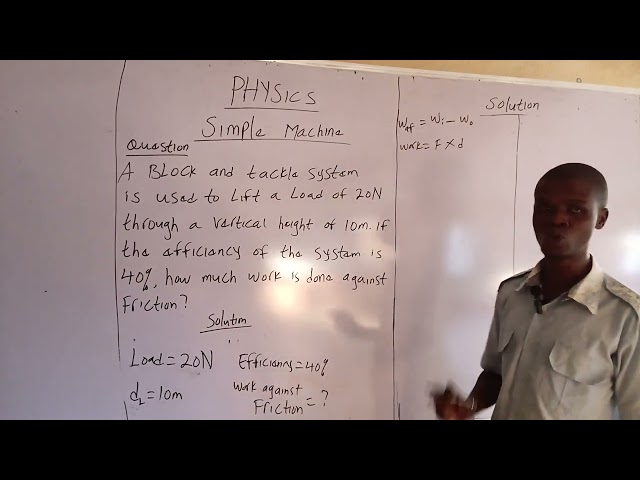 PHYSICS
Simple Machine
Question
A Block and tackle system
is used to Lift a Load of 20N
through a vertical height of 10m. if
the efficiency of the system is
40%, how much work is done against
Friction?
Solution
Load = 20N
Efficiency = 40%
dL = 10m
Work against
Friction = ?
Solution
Wff = Wi - Wo
Work = F x d